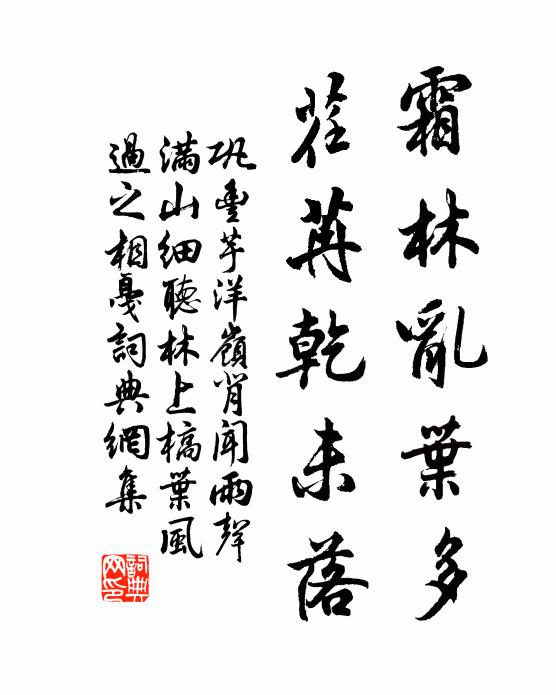 霜林亂葉多
荏苒乾未落
巩豊芋洋嶺肖闻雨聲
满山细聽林上槁葉風
過之相戛詞典網集
詞典网印